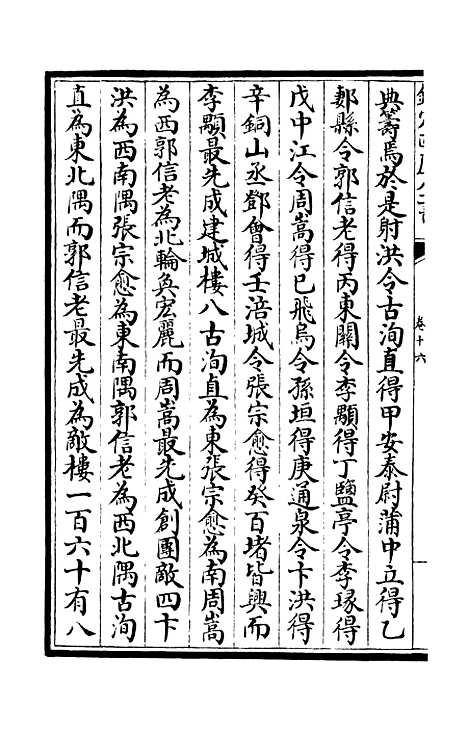 典籌焉於是射洪令古洵直得甲安泰尉蒲中立得乙
郪縣令郭信老得丙東關令李顒得丁鹽亭令李琢得
戊中江令周嵩得已飛烏令孫垣得庚通泉令卞洪得
辛銅山丞鄧會得壬涪城令張宗愈得癸百堵皆興而
李顒最先成建城樓八古洵直為東張宗愈為南周嵩
為西郭信老為北輪奐宏麗而周嵩最先成創團敵四卞
洪為西南隅張宗愈為東南隅郭信老為西北隅古洵
直為東北隅而郭信老最先成為敵樓一百六十有八
卷十六